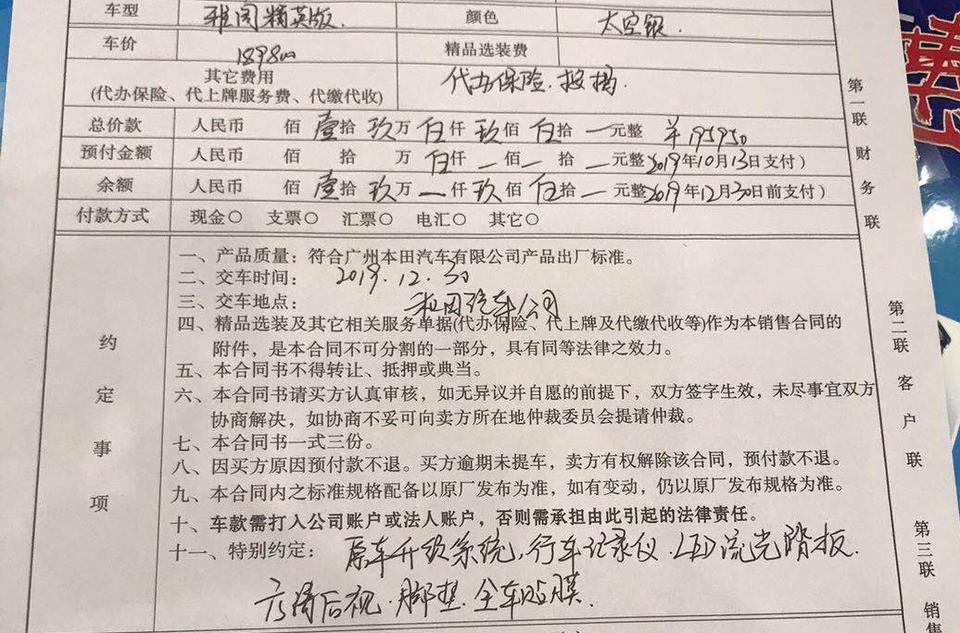 车型 雅阁精英版 颜色 太空银
车价 189800 精品选装费
其它费用
(代办保险、代上牌服务费、代缴代收) 代办保险.
总价款 人民币 佰 壹拾 玖万 伍仟 玖佰 伍拾 一元整 ¥195950
预付金额 人民币 佰 拾 万 伍仟 一佰 一拾 一元整(2019年10月13日支付)
余额 人民币 佰 壹拾 玖万 一仟 玖佰 伍拾 一元整(2019年12月30日前支付)
付款方式 现金○ 支票○ 汇票○ 电汇○ 其它○
约定事项
一、产品质量：符合广州本田汽车有限公司产品出厂标准。
二、交车时间： 2019.12.30
三、交车地点： 汽车公司
四、精品选装及其它相关服务单据(代办保险、代上牌及代缴代收等)作为本销售合同的
附件，是本合同不可分割的一部分，具有同等法律之效力。
五、本合同书不得转让、抵押或典当。
六、本合同书请买方认真审核，如无异议并自愿的前提下，双方签字生效，未尽事宜双方
协商解决，如协商不妥可向卖方所在地仲裁委员会提请仲裁。
七、本合同书一式三份。
八、因买方原因预付款不退。买方逾期未提车，卖方有权解除该合同，预付款不退。
九、本合同内之标准规格配备以原厂发布为准，如有变动，仍以原厂发布规格为准。
十、车款需打入公司账户或法人账户，否则需承担由此引起的法律责任。
十一、特别约定： 原车升级系统,行车记录仪.LED流光踏板.
后视.脚垫.全车贴膜.
第一联 财务联
第二联 客户联
第三联 销售